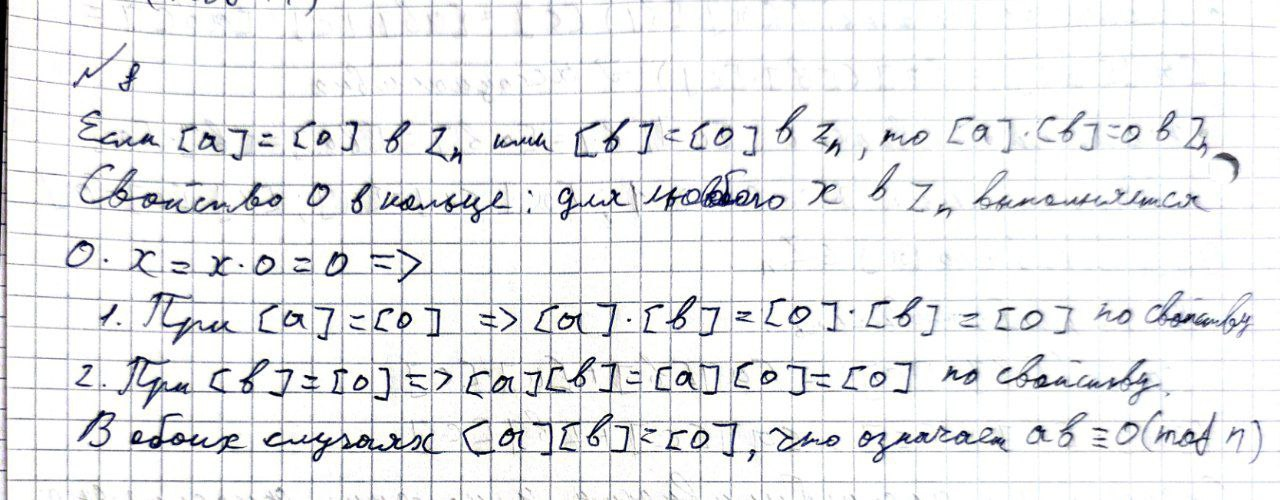 № 8
Если [a] = [0] в Zₙ или [b] = [0] в Zₙ, то [a]·[b]=0 в Zₙ
Свойство 0 в кольце: для любого x в Zₙ выполняется
0·x = x·0 = 0 =>
1. При [a] = [0] => [a]·[b] = [0]·[b] = [0] по свойству
2. При [b] = [0] => [a][b] = [a][0] = [0] по свойству.
В обоих случаях [a][b] = [0], что означает ab ≡ 0 (mod n)